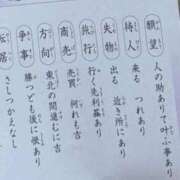 願望 人の助ありて叶ふ事あり
待人 来る つれあり
失物 出る 近き所にあり
旅行 行く先利益あり
商売 売買 何れも吉
方向 東北の間進むに吉
争事 勝つとも後に恨あり
転居 さしつかえなし